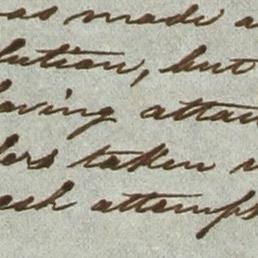 as made a
lution, but
having attac
ders taken
esh attemps